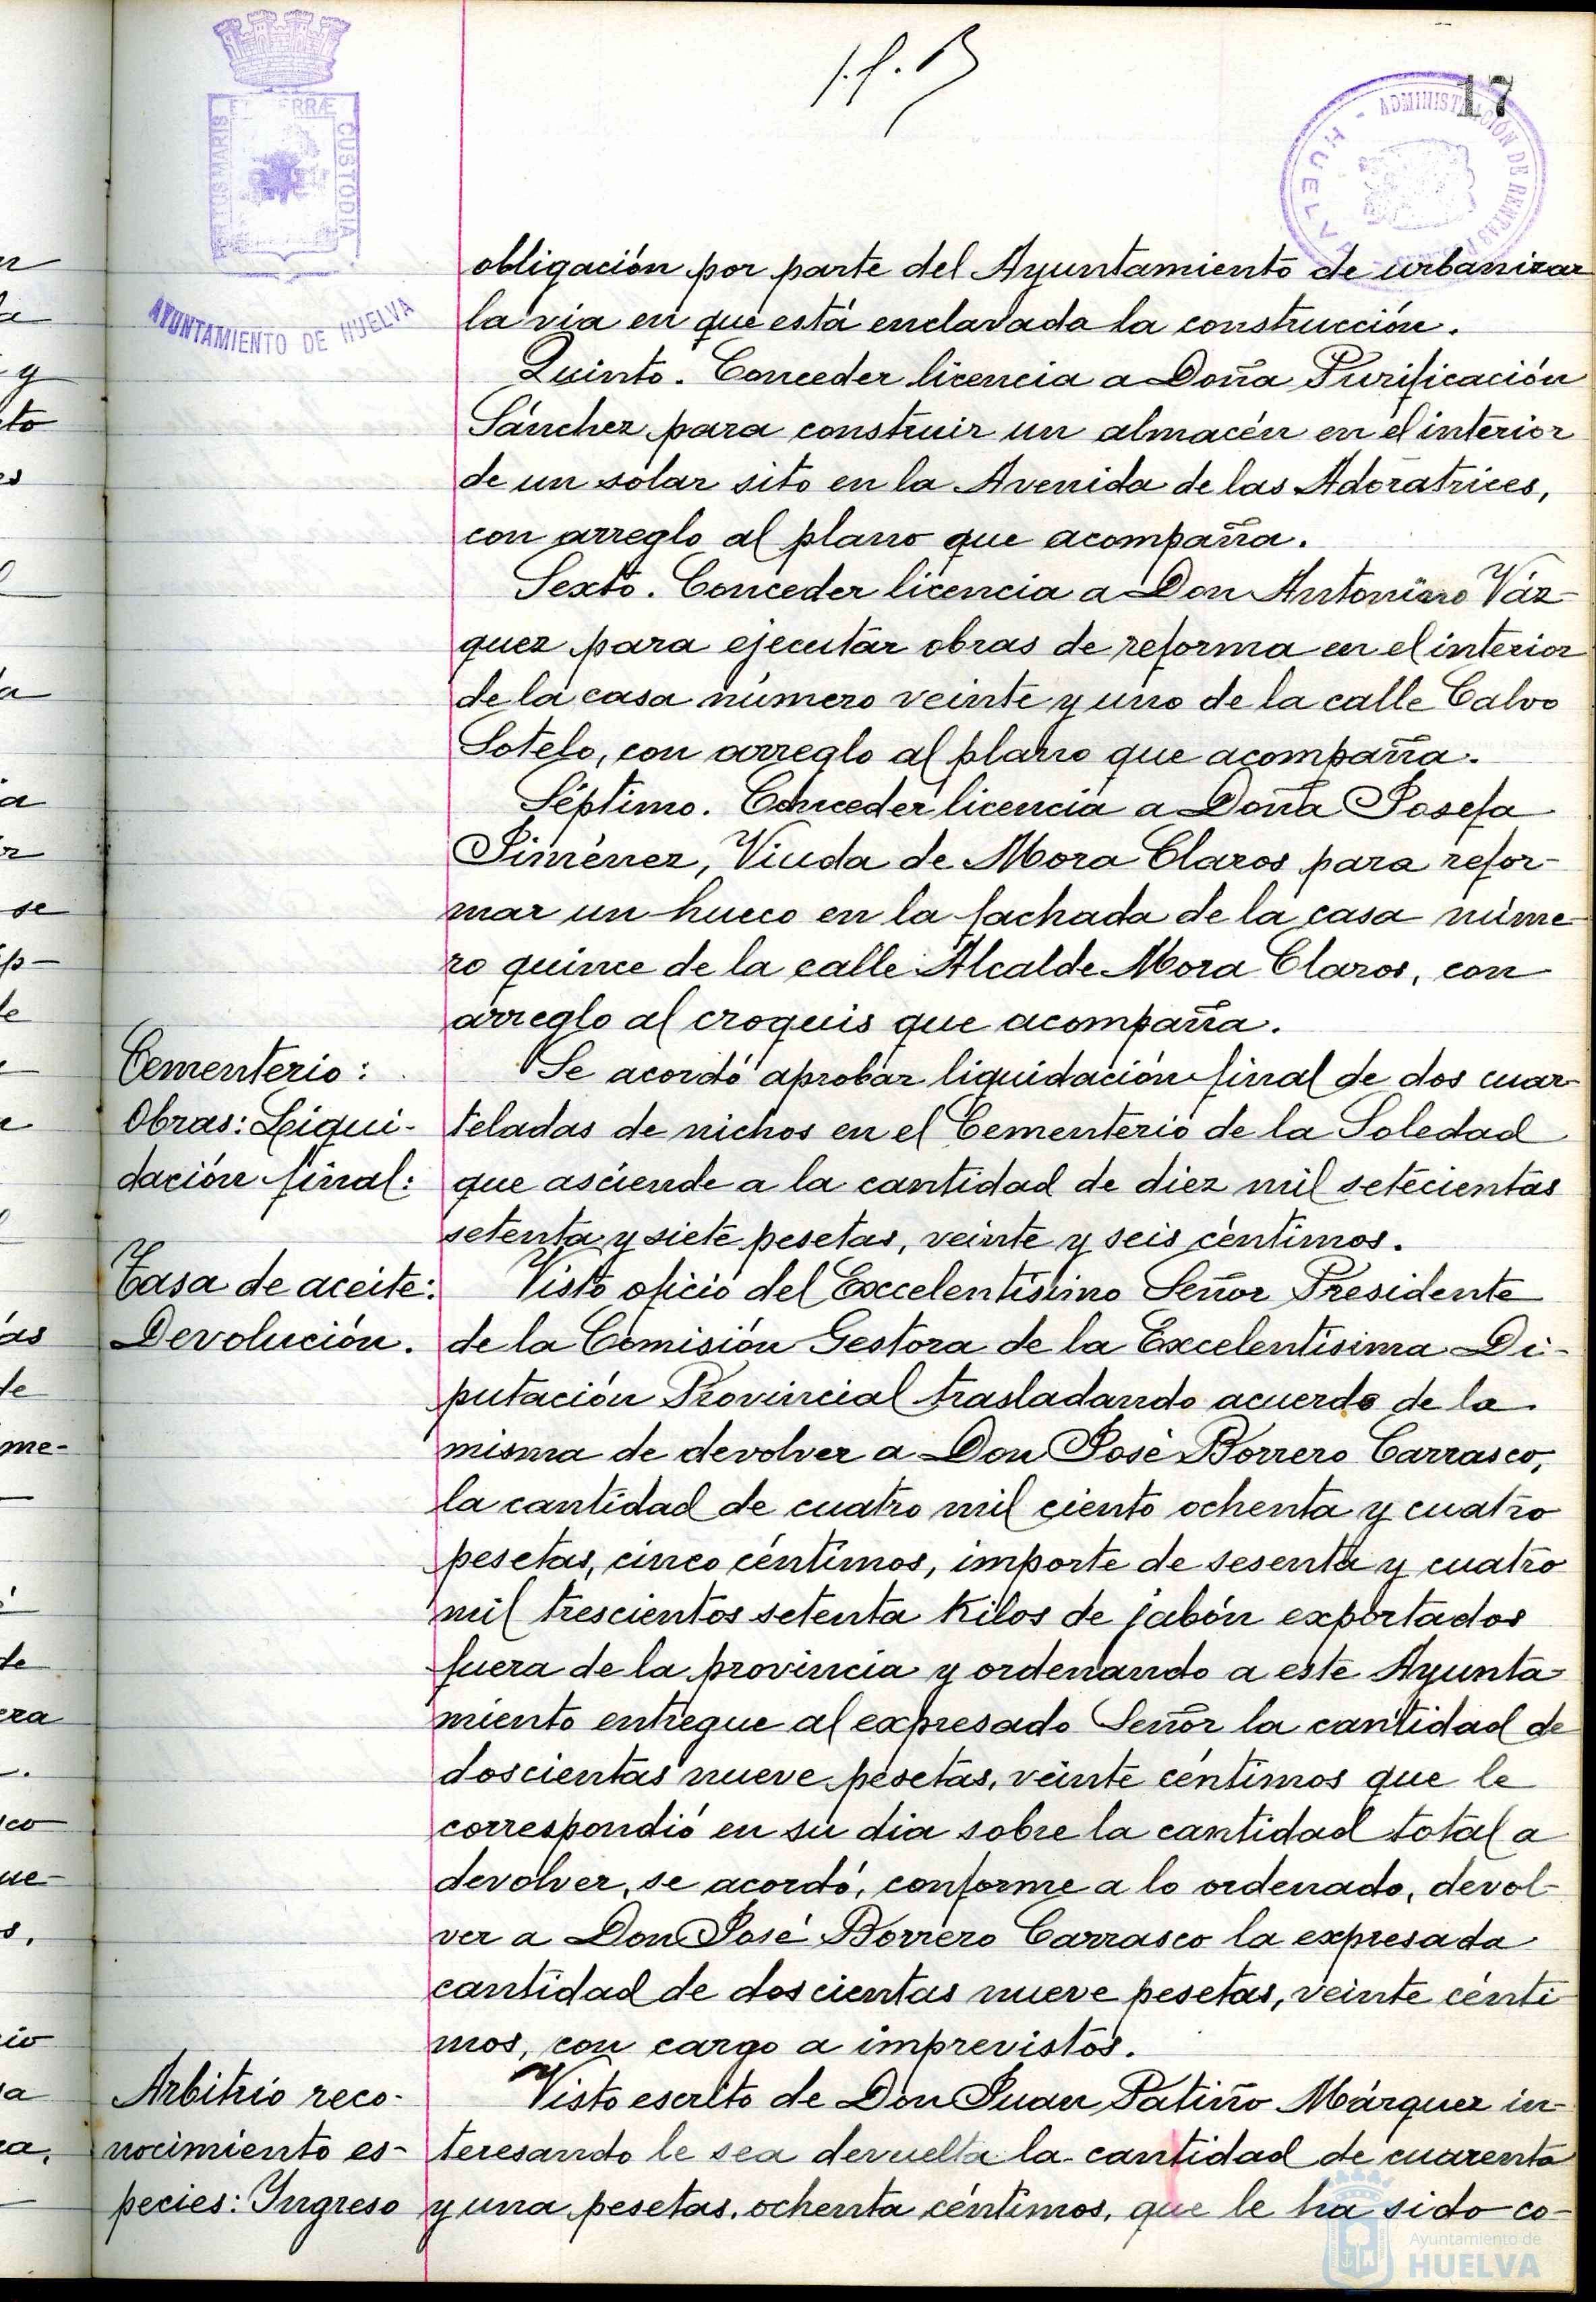 17
PORTUS MARIS ET TERRÆ CUSTODIA
AYUNTAMIENTO DE HUELVA
ADMINISTRACIÓN DE RENTAS
HUELVA
obligación por parte del Ayuntamiento de urbanizar
la via en que está enclavada la construcción.
Quinto. Conceder licencia a Doña Purificación
Sánchez para construir un almacén en el interior
de un solar sito en la Avenida de las Adoratrices,
con arreglo al plano que acompaña.
Sexto. Conceder licencia a Don Antonino Váz-
quez para ejecutar obras de reforma en el interior
de la casa número veinte y uno de la calle Calvo
Sotelo, con arreglo al plano que acompaña.
Séptimo. Conceder licencia a Doña Josefa
Jiménez, Viuda de Mora Claros para refor-
mar un hueco en la fachada de la casa núme-
ro quince de la calle Alcalde Mora Claros, con
arreglo al croquis que acompaña.
Cementerio:
Obras: Liqui-
dación final:
Se acordó aprobar liquidación final de dos cuar-
teladas de nichos en el Cementerio de la Soledad
que asciende a la cantidad de diez mil setecientas
setenta y siete pesetas, veinte y seis céntimos.
Tasa de aceite:
Devolución.
Visto oficio del Excelentísimo Señor Presidente
de la Comisión Gestora de la Excelentísima Di-
putación Provincial trasladando acuerdo de la
misma de devolver a Don José Borrero Carrasco,
la cantidad de cuatro mil ciento ochenta y cuatro
pesetas, cinco céntimos, importe de sesenta y cuatro
mil trescientos setenta Kilos de jabón exportados
fuera de la provincia y ordenando a este Ayunta-
miento entregue al expresado Señor la cantidad de
doscientas nueve pesetas, veinte céntimos que le
correspondió en su dia sobre la cantidad total a
devolver, se acordó, conforme a lo ordenado, devol-
ver a Don José Borrero Carrasco la expresada
cantidad de doscientas nueve pesetas, veinte cénti
mos, con cargo a imprevistos.
Arbitrio reco-
nocimiento es-
pecies: Ingreso
Visto escrito de Don Juan Patiño Márquez in-
teresando le sea devuelta la cantidad de cuarenta
y una pesetas, ochenta céntimos, que le ha sido co-
Ayuntamiento de
HUELVA